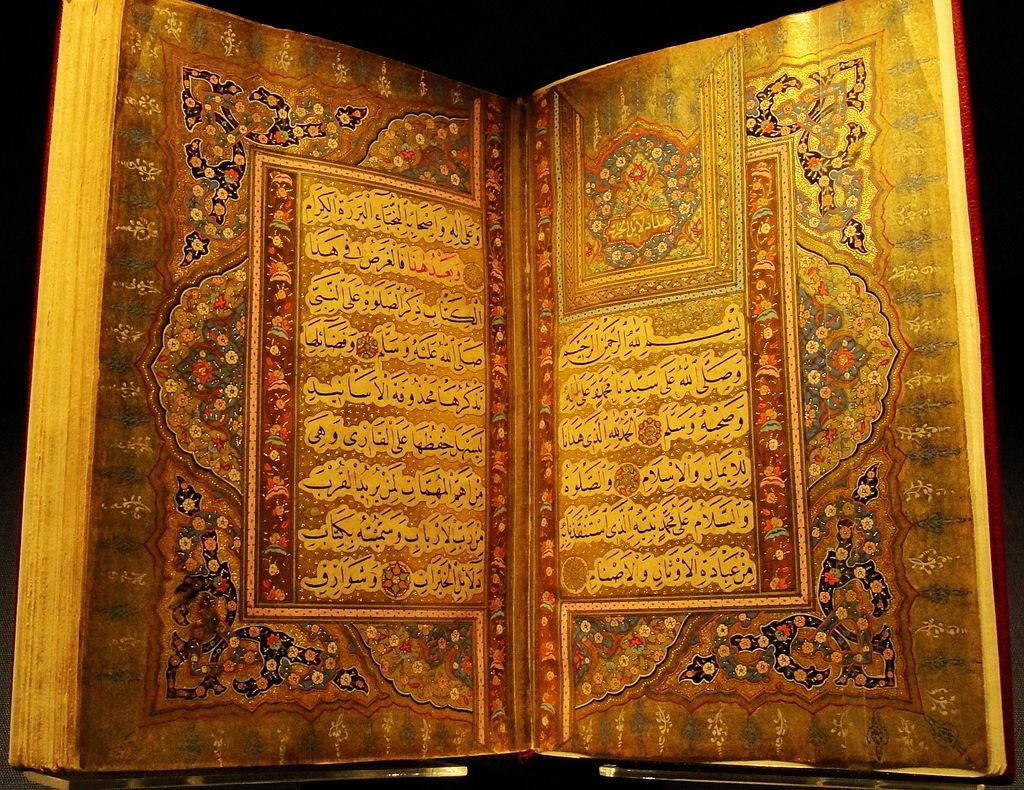 هذا دلائل الخيرات
بسم الله الرحمن الرحيم
وصلى الله على سيدنا محمد وعلى اله
وصحبه وسلم الحمد لله الذي هدانا
للايمان والاسلام والصلوة
والسلام على محمد نبيه الذي استنقذنا به
من عبادة الاوثان والاصنام
وعلى اله واصحابه النجباء البررة الكرام
وبعد هذا فالغرض في هذا
الكتاب ذكر الصلوة على النبي
صلى الله عليه وسلم وفضائلها
نذكرها محذوفة الاسانيد
ليسهل حفظها على القارئ وهي
من اهم المهمات لمن يريد القرب
من رب الارباب وسميته بكتاب
دلائل الخيرات وشوارق